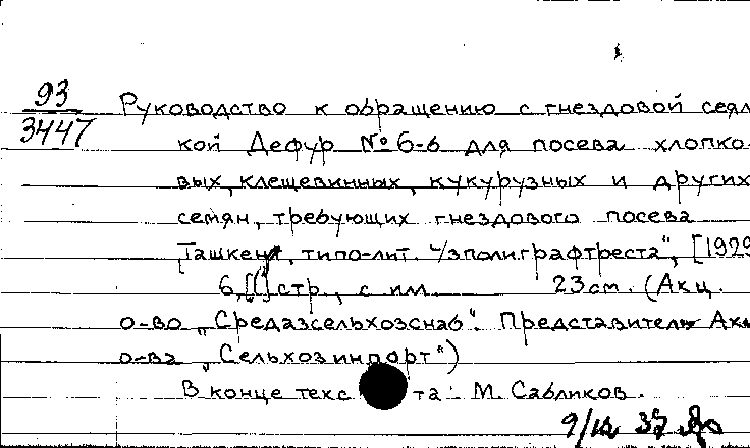 93
3447
Руководство к обращению с гнездовой сеял
кой Дефур № 6-б для посева хлопко
вых, клещевинных, кукурузных и других
семян, требующих гнездового посева
[Ташкент, типо-лит. Узполиграфтреста", [1929
6, [1] стр., с ил. 23 см. (Акц.
о-во „Средазсельхозснаб". Представитель Акц
о-ва „Сельхозимпорт")
В конце текста: М. Сабликов.